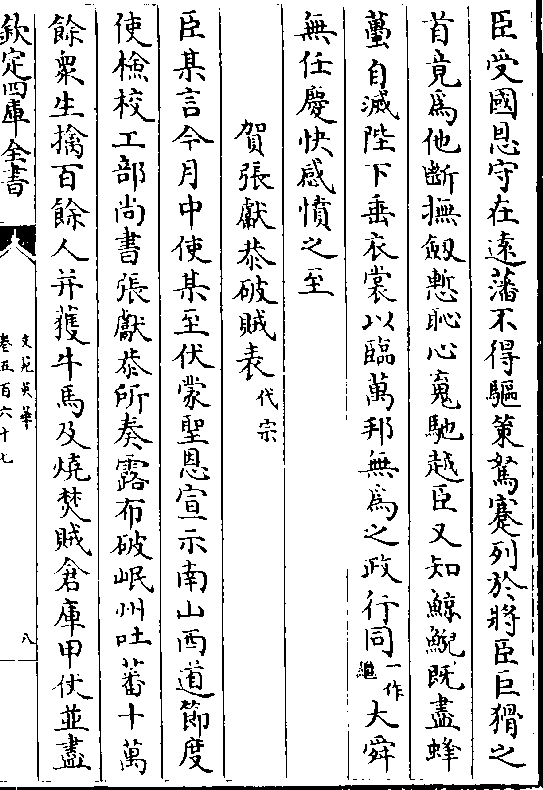 臣受國恩守在遠藩不得驅策駑蹇列於將臣巨猾之
首竟爲他斷撫劔慙恥心䰟馳越臣又知鯨鯢既盡蜂
蠆自滅陛下垂衣裳以臨萬邦無爲之政行同一作繼大舜
無任慶快感憤之至
賀張獻恭破賊表代宗
臣某言今月中使某至伏蒙聖恩宣示南山西道節度
使檢校工部尚書張獻恭所奏露布破岷州吐蕃十萬
餘衆生擒百餘人并獲牛馬及燒焚賊倉庫甲仗並盡
欽定四庫全書
文苑英華
卷五百六十七
八